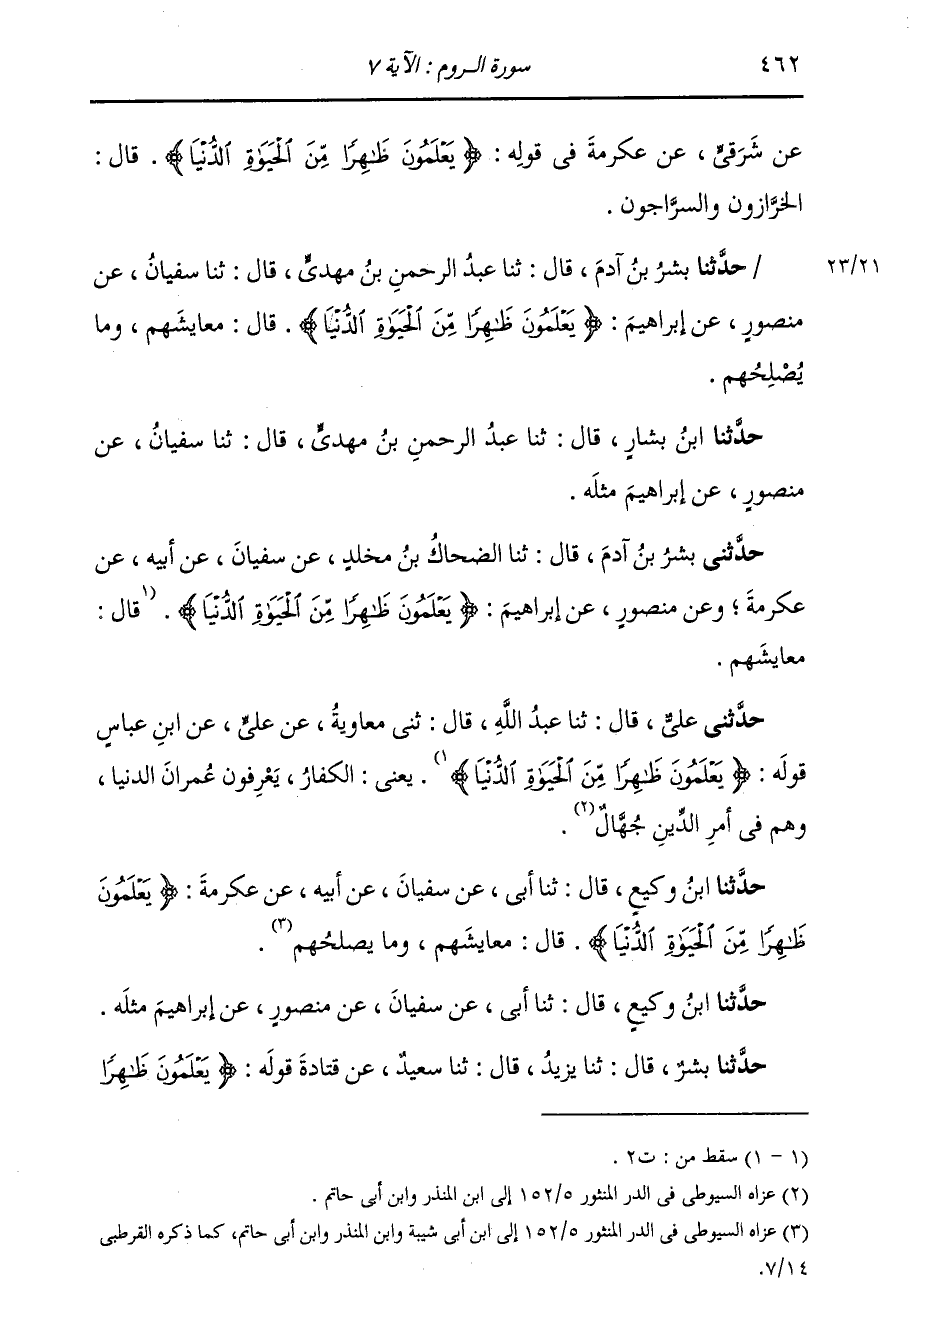 ٤٦٢ سورة الروم : الآية ٧
عن شَرَقىٍّ ، عن عكرمةَ فى قولِه : ﴿ يَعْلَمُونَ ظَٰهِرًا مِّنَ ٱلْحَيَوٰةِ ٱلدُّنْيَا ﴾ . قال :
الخرَّازون والسرَّاجون .
٢٣/٢١ / حدَّثنا بشرُ بنُ آدمَ ، قال : ثنا عبدُ الرحمنِ بنُ مهدىٍّ ، قال : ثنا سفيانُ ، عن
منصورٍ ، عن إبراهيمَ : ﴿ يَعْلَمُونَ ظَٰهِرًا مِّنَ ٱلْحَيَوٰةِ ٱلدُّنْيَا ﴾ . قال : معايشَهم ، وما
يُصْلِحُهم .
حدَّثنا ابنُ بشارٍ ، قال : ثنا عبدُ الرحمنِ بنُ مهدىٍّ ، قال : ثنا سفيانُ ، عن
منصورٍ ، عن إبراهيمَ مثلَه .
حدَّثنى بشرُ بنُ آدمَ ، قال : ثنا الضحاكُ بنُ مخلدٍ ، عن سفيانَ ، عن أبيه ، عن
عكرمةَ ؛ وعن منصورٍ ، عن إبراهيمَ : ﴿ يَعْلَمُونَ ظَٰهِرًا مِّنَ ٱلْحَيَوٰةِ ٱلدُّنْيَا ﴾ . (١ قال :
معايشَهم .
حدَّثنى علىٌّ ، قال : ثنا عبدُ اللَّهِ ، قال : ثنى معاويةُ ، عن علىٍّ ، عن ابنِ عباسٍ
قولَه : ﴿ يَعْلَمُونَ ظَٰهِرًا مِّنَ ٱلْحَيَوٰةِ ٱلدُّنْيَا ﴾ ١) . يعنى : الكفارُ ، يَعْرِفون عُمرانَ الدنيا ،
وهم فى أمرِ الدِّينِ جُهَّالٌ (٢) .
حدَّثنا ابنُ وكيعٍ ، قال : ثنا أبى ، عن سفيانَ ، عن أبيه ، عن عكرمةَ : ﴿ يَعْلَمُونَ
ظَٰهِرًا مِّنَ ٱلْحَيَوٰةِ ٱلدُّنْيَا ﴾ . قال : معايشَهم ، وما يصلحُهم (٣) .
حدَّثنا ابنُ وكيعٍ ، قال : ثنا أبى ، عن سفيانَ ، عن منصورٍ ، عن إبراهيمَ مثلَه .
حدَّثنا بشرٌ ، قال : ثنا يزيدُ ، قال : ثنا سعيدٌ ، عن قتادةَ قولَه : ﴿ يَعْلَمُونَ ظَٰهِرًا
(١ - ١) سقط من : ت٢ .
(٢) عزاه السيوطى فى الدر المنثور ١٥٢/٥ إلى ابن المنذر وابن أبى حاتم .
(٣) عزاه السيوطى فى الدر المنثور ١٥٢/٥ إلى ابن أبى شيبة وابن المنذر وابن أبى حاتم، كما ذكره القرطبى
٧/١٤.